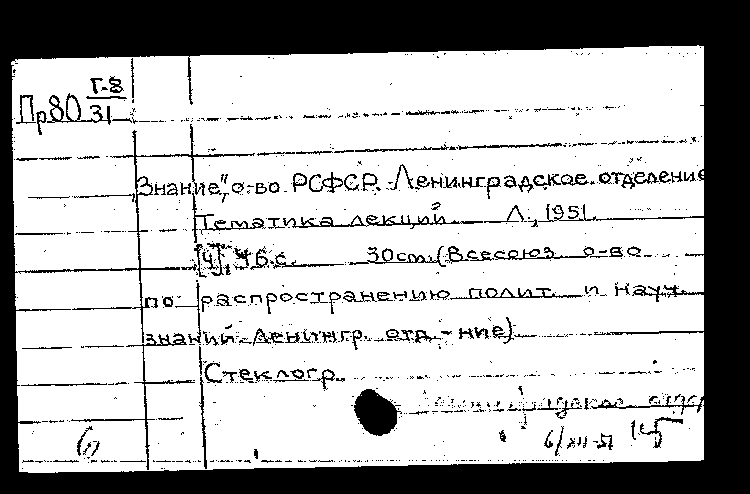 Г-8
Пр80 31
"Знание", о-во РСФСР. Ленинградское отделение
Тематика лекций. Л., 1951.
[4], 46 с. 30 cm. (Всесоюз. о-во
по распространению полит. и науч.
знаний. Ленингр. отд.-ние)
Стеклогр.
Ленинградское
6/XII-51